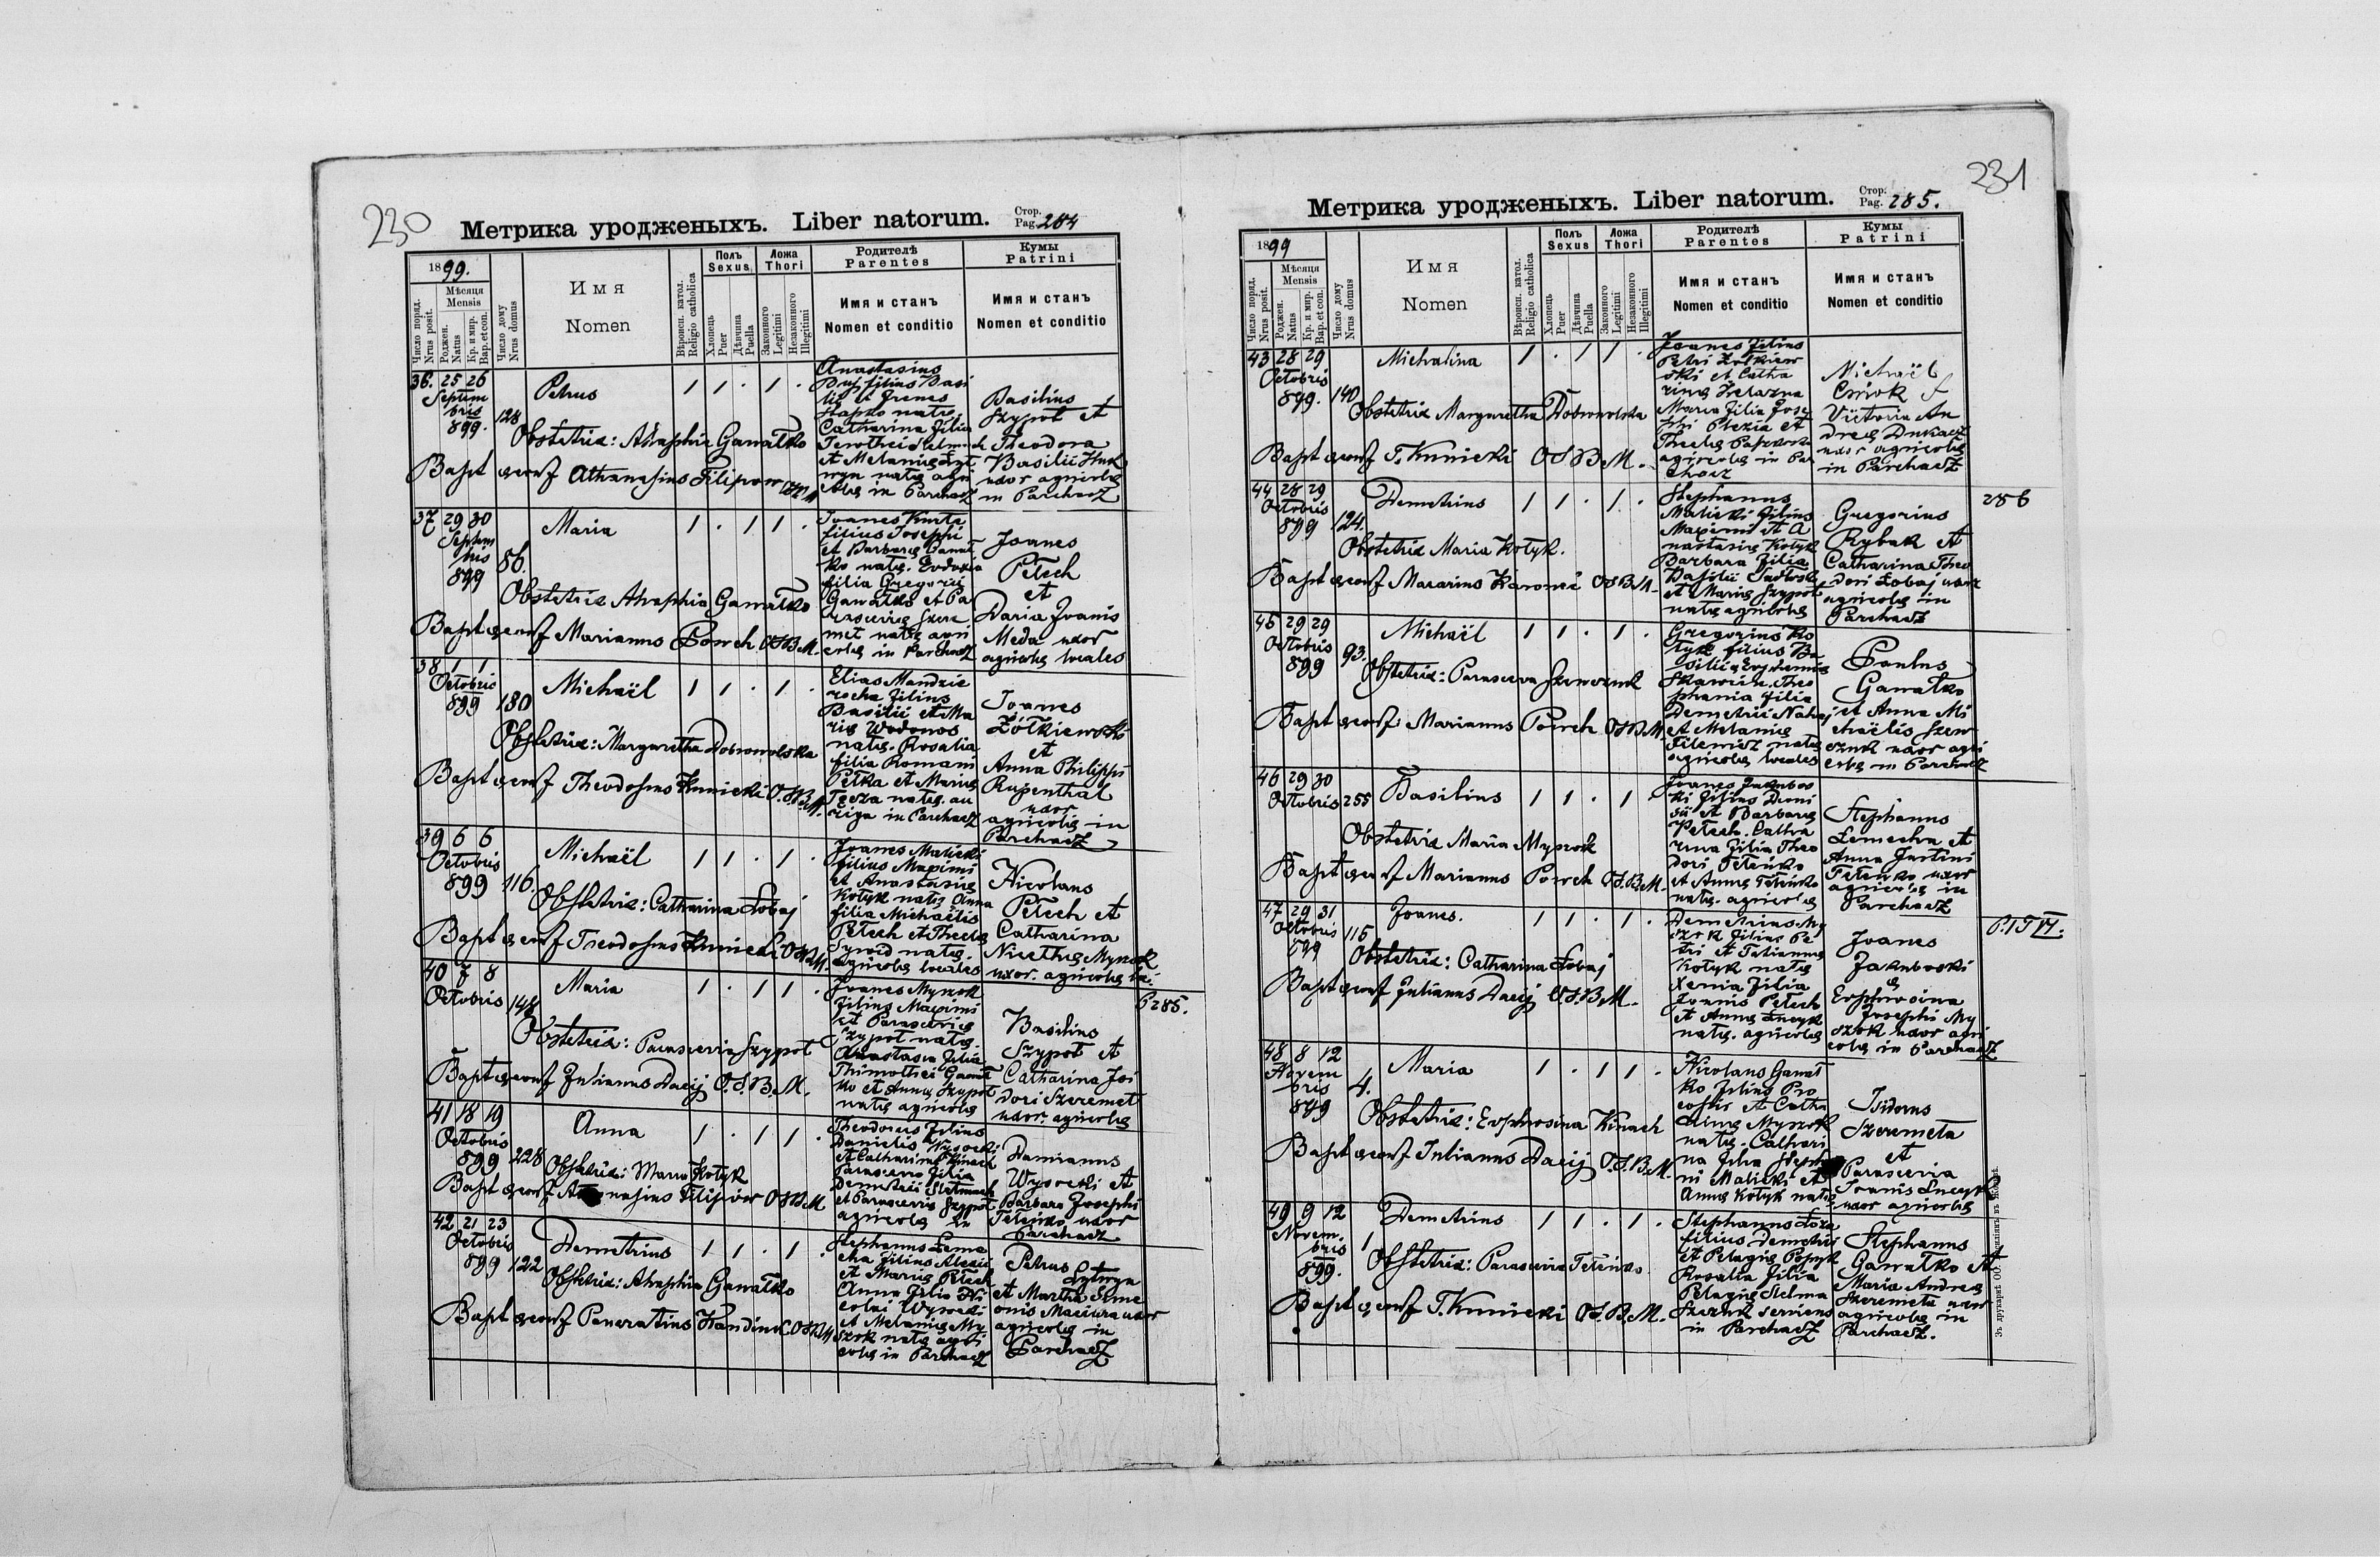 230
Метрика уродженыхъ. Liber natorum. Стор. Pag. 284
1899.
Число поряд. Nrus posit.
Мѣсяця Mensis
Роджен. Natus
Кр. и мир. Bap. et con.
Число дому Nrus domus
Имя Nomen
Вѣроисп. катол. Religio catholica
Полъ Sexus
Хлопець Puer
Дѣвчина Puella
Ложа Thori
Законного Legitimi
Незаконного Illegitimi
Родителѣ Parentes
Имя и станъ Nomen et conditio
Кумы Patrini
Имя и станъ Nomen et conditio
36. 25 26 Septembris 899. 128
Petrus 1 1 . 1 .
Obstetrix: Ahaphia Gawałko
Bapt et conf Athanasius Filipow
Anastasius
filius Basi
lii et Irenes
natæ.
Catharina filia
et Melaniæ
natæ agri
colæ in Parchacz
Basilius
Szypot et
Theodora
Basilii Huk
uxor agricolæ
in Parchacz
37 29 30 Septembris 899 86.
Maria 1 . 1 1 .
Obstetrix Ahaphia Gawałko
Bapt et conf Marianus Powch OSBM.
Joanes Kurta
filius Josephi
et Barbaræ Gawał
ko natæ. Eudoxia
filia Gregorii
Gawałko et Pa
rasceviæ Szere
met natæ agri
colæ in Parchacz
Joanes
Pełech
et
Daria Joanis
Meda uxor
agricolæ locales
38 1 1 Octobris 899 180
Michaël 1 1 . 1 .
Obstetrix: Margaretha Dobrowolska
Bapt et conf Theodosius Kunicki O.S.B.M.
Elias Mandzie
rocha filius
Basilii et Ma
riæ Wodonos
natæ. Rosalia
filia Romani
Petka et Mariæ
natæ. au
riga in Parchacz
Joanes
Żółkiewski
et
Anna Philippi
Rupenthal
uxor
agricolæ in
Parchacz
39 6 6 Octobris 899 116.
Michaël 1 1 . 1 .
Obstetrix: Catharina Łobaj
Bapt et conf Theodosius Kunicki OSBM.
Joanes Malicki
filius Maximi
et Anastasiæ
Kotyk natæ Anna
filia Michaëlis
Pełech et Theclæ
natæ.
agricolæ locales
Nicolaus
Pełech et
Catharina
Nicetæ Myszok
uxor. agricolæ
40 7 8 Octobris 148
Maria 1 . 1 1 .
Obstetrix: Parascevia Szypot
Bapt et conf Julianus Dacij O.S.B.M.
Joanes Myszok
filius Maximi
et Parasceviæ
Szypot natæ.
Anastasia filia
Thimothei Gawał
ko et Annæ Szypot
natæ agricolæ
Basilius
Szypot et
Catharina Isi
dori Szeremet
uxor. agricolæ
285.
41 18 19 Octobris 899 228
Anna 1 . 1 1 .
Obstetrix: Maria Kotyk
Bapt et conf Athanasius Filipow OSBM
Theodorus filius
Danielis Wysocki
et Catharinæ Kinach
Parascevia filia
Demetrii Stelmach
et Parasceviæ Szypot
agricolæ in
Damianus
Wysocki et
Barbara Josephi
Teleńko uxor
Parchacz
42 21 23 Octobris 899 122
Demetrius 1 1 . 1 .
Obstetrix: Ahaphia Gawałko
Bapt et conf Pancratius Kandiuk OSBM
Stephanus Leme
cha filius Alexii
et Mariæ Pełech
Anna filia Ni
colai Wysocki
et Melaniæ My
szok natæ agri
colæ in Parchacz
Petrus
Lytwyn
et Martha Sime
onis Maciura uxor
agricolæ in
Parchacz
231
Метрика уродженыхъ. Liber natorum. Стор. Pag. 285.
1899
Число поряд. Nrus posit.
Мѣсяця Mensis
Роджен. Natus
Кр. и мир. Bap. et con.
Число дому Nrus domus
Имя Nomen
Вѣроисп. катол. Religio catholica
Полъ Sexus
Хлопець Puer
Дѣвчина Puella
Ложа Thori
Законного Legitimi
Незаконного Illegitimi
Родителѣ Parentes
Имя и станъ Nomen et conditio
Кумы Patrini
Имя и станъ Nomen et conditio
43 28 29 Octobris 899. 140
Michalina 1 . 1 1 .
Obstetrix Margaretha Dobrowolska
Bapt et conf T. Kunicki OSBM.
Joanes filius
Petri Żołkiew
ski et Catha
rinæ Żelazna
Maria filia Jose
phi Plezia et
Theclæ
agricolæ in Par
chacz
Michaël
Ćwiok
Victoria An
dreæ Dukacz
uxor agricolæ
in Parchacz
44 28 29 Octobris 899 124.
Demetrius 1 1 . 1 .
Obstetrix Maria Kotyk.
Bapt et conf Macarius Karowić OSBM.
Stephanus
Malicki filius
Maximi et A
nastasiæ Kotyk
Barbara filia
Basilii
et Mariæ Szypot
natæ agricolæ
Gregorius
Rybak et
Catharina Theo
dori Łobaj uxor
agricolæ in
Parchacz
286
45 29 29 Octobris 899 93.
Michaël 1 1 . 1 .
Obstetrix: Parasceva Szewczuk
Bapt et conf: Marianus Powch OSBM.
Gregorius Ko
tyk filius Ba
silii & Euphemiæ
Theo
phania filia
Demetrii Nahaj
et Melaniæ
Filewicz natæ
agricolæ locales
Paulus
Gawałko
et Anna Mi
chaëlis Szew
czuk uxor agri
colæ in Parchacz
46 29 30 Octobris 255
Basilius 1 1 . 1 .
Obstetrix Maria Myszok
Bapt et conf Marianus Powch O.S.B.M.
Joanes Jakubow
ski filius Dioni
sii et Barbaræ
Pełech. Catha
rina filia Theo
dori Teleńko
et Annæ Teleńko
natæ. agricolæ
Stephanus
Lemecha et
Anna Justini
Teleńko uxor
agricolæ in
Parchacz
47 29 31 Octobris 899 115
Joanes. 1 1 . 1 .
Obstetrix: Catharina Łobaj
Bapt et conf Julianus Dacij O.S.B.M.
Demetrius My
szok filius Pe
tri et Tatiannæ
Kotyk natæ
Xenia filia
Joannis Pełech
et Annæ Łucyk
natæ. agricolæ
Joanes
Jakubowski
&
Evphrosina
Josephi My
szok uxor agri
colæ in Parchacz
48 8 12 Novembris 899 4.
Maria 1 . 1 1 .
Obstetrix: Evphrosina Kinach
Bapt et conf Julianus Dacij O.S.B.M.
Nicolaus Gawał
ko filius Pro
copii et Catha
rinæ Myszok
natæ. Cathari
na filia Stepha
ni Malicki et
Annæ Kotyk natæ
Isidorus
Szeremeta
et
Parascevia
Joanis Łucyk
uxor agricolæ
49 9 12 Novembris 899. 1
Demetrius 1 1 . 1 .
Obstetrix: Parascevia Teleńko
Bapt et conf T. Kunicki O.S.B.M.
Stephanus Łoza
filius Demetrii
et Pelagiæ Popyk
Rosalia filia
Pelagiæ Stelma
szczuk serviens
in Parchacz
Stephanus
Gawałko et
Maria Andreæ
Szeremeta uxor
agricolæ in
Parchacz.
Зъ друкарнѣ ОО. Василіянъ въ Жовквѣ.